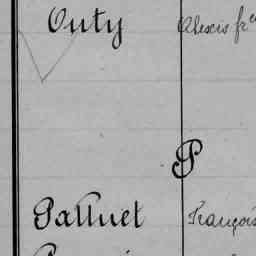 Outy Alexis fr
P
Palluet François